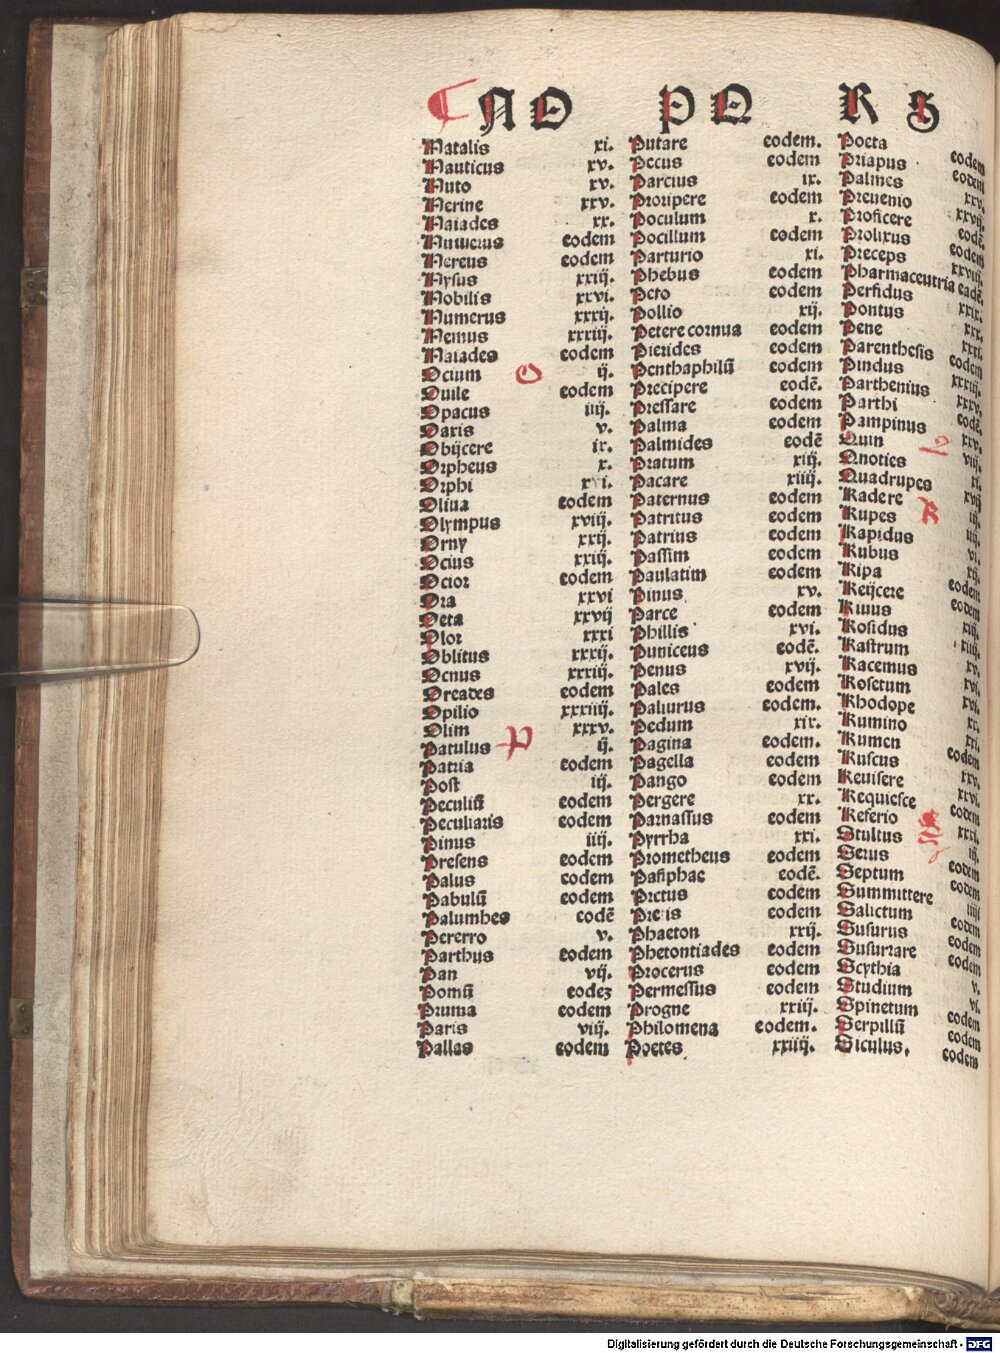 N O P Q R S
Natalis xi.
Nauticus xv.
Nuto xv.
Nerine xxv.
Naiades xx.
Numerus eodem
Nereus eodem
Nysus xxiij.
Nobilis xxvi.
Numerus xxxij.
Nemus xxxiij.
Naiades eodem
O
Ocium ij.
Ouile eodem
Opacus iiij.
Oaxis v.
Obijcere ix.
Orpheus x.
Orphi xvi.
Oliua eodem
Olympus xviij.
Orny xxij.
Ocius xxiij.
Ocior eodem
Ora xxvi
Oeta xxvij
Olor xxxi
Oblitus xxxij.
Ocnus xxxiij.
Oreades eodem
Opilio xxxiiij.
Olim xxxv.
P
Patulus ij.
Patria eodem
Post iij.
Peculiū eodem
Peculiaris eodem
Pinus iiij.
Presens eodem
Palus eodem
Pabulū eodem
Palumbes eodē
Pererro v.
Parthus eodem
Pan vij.
Pomū eodeʒ
Pruma eodem
Paris viij.
Pallas eodem
Putare eodem.
Pecus eodem
Parcius ix.
Proripere eodem
Poculum x.
Pocillum eodem
Parturio xi.
Phebus eodem
Peto eodem
Pollio xij.
Petere cornua eodem
Pierides eodem
Penthaphilū eodem
Precipere eodē.
Pressare eodem
Palma eodem
Palmides eodē
Pratum xiij.
Pacare xiiij.
Paternus eodem
Patritus eodem
Patrius eodem
Passim eodem
Paulatim eodem
Pinus xv.
Parce eodem
Phillis xvi.
Puniceus eodē.
Penus xvij.
Pales eodem
Paliurus eodem.
Pedum xix.
Pagina eodem.
Pagella eodem
Pango eodem
Pergere xx.
Parnassus eodem
Pyrrha xxi.
Prometheus eodem
Pasiphae eodē.
Pictus eodem
Preis eodem
Phaeton xxij.
Phetontiades eodem
Procerus eodem
Permessus eodem
Progne xxiij.
Philomena eodem.
Poetes xxiiij.
Poeta eodem
Priapus eodem
Palmes xxv.
Preuenio xxvij.
Proficere eodē.
Prolixus eodem
Preceps xxviij.
Pharmaceutria eadē.
Perfidus xxix.
Pontus xxx.
Pene xxxi.
Parenthesis eodem
Pindus xxxiij.
Parthenius xxxv.
Parthi eodē.
Pampinus xxv.
Quin viij.
Quoties xi.
Quadrupes xvij
R
Radere iij.
Rupes iiij.
Rapidus vi.
Rubus xij.
Ripa eodem
Reijcere eodem
Riuus xiij.
Rosidus xiiij.
Rastrum xv.
Racemus xvi.
Rosetum xvi.
Rhodope xx.
Rumino xxi.
Rumen eodem
Ruscus xxv.
Reuisere xxvi.
Requiesce eodem
Referio xxxi.
S
Stultus iij.
Serus eodem
Septum eodem
Summittere iiij
Salictum eodem
Susurus eodem
Susurrare eodem
Scythia v.
Studium vi.
Spinetum eodem
Serpillū eodem
Siculus. eodem
Digitalisierung gefördert durch die Deutsche Forschungsgemeinschaft - DFG